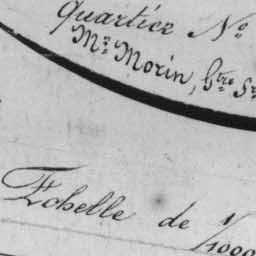 Quartier No
Mr. Morin,
Echelle de 1/1000